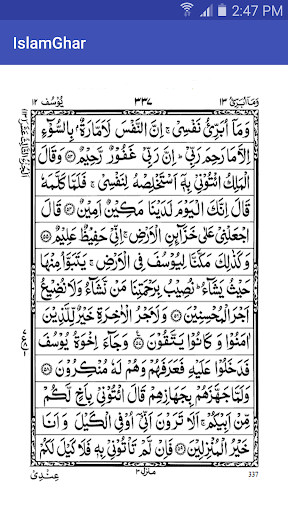 2:47 PM
IslamGhar
يُوْسُف ١٢
٣٣٧
وَمَآ اُبَرِّئُ ١٣
وَمَآ اُبَرِّئُ نَفْسِيْ ۚ اِنَّ النَّفْسَ لَاَمَّارَةٌۢ بِالسُّوْٓءِ
اِلَّا مَا رَحِمَ رَبِّيْ ؕ اِنَّ رَبِّيْ غَفُوْرٌ رَّحِيْمٌ ﴿۵۳﴾ وَقَالَ
الْمَلِكُ ائْتُوْنِيْ بِهٖٓ اَسْتَخْلِصْهُ لِنَفْسِيْ ۚ فَلَمَّا كَلَّمَهٗ
قَالَ اِنَّكَ الْيَوْمَ لَدَيْنَا مَكِيْنٌ اَمِيْنٌ ﴿۵۴﴾ قَالَ
اجْعَلْنِيْ عَلٰى خَزَآئِنِ الْاَرْضِ ۚ اِنِّيْ حَفِيْظٌ عَلِيْمٌ ﴿۵۵﴾
وَكَذٰلِكَ مَكَّنَّا لِيُوْسُفَ فِي الْاَرْضِ ۚ يَتَبَوَّاُ مِنْهَا
حَيْثُ يَشَآءُ ؕ نُصِيْبُ بِرَحْمَتِنَا مَنْ نَّشَآءُ وَلَا نُضِيْعُ
اَجْرَ الْمُحْسِنِيْنَ ﴿۵۶﴾ وَلَاَجْرُ الْاٰخِرَةِ خَيْرٌ لِّلَّذِيْنَ
اٰمَنُوْا وَكَانُوْا يَتَّقُوْنَ ﴿۵۷﴾ وَجَآءَ اِخْوَةُ يُوْسُفَ
فَدَخَلُوْا عَلَيْهِ فَعَرَفَهُمْ وَهُمْ لَهٗ مُنْكِرُوْنَ ﴿۵۸﴾
وَلَمَّا جَهَّزَهُمْ بِجَهَازِهِمْ قَالَ ائْتُوْنِيْ بِاَخٍ لَّكُمْ
مِّنْ اَبِيْكُمْ ۚ اَلَا تَرَوْنَ اَنِّيْٓ اُوْفِي الْكَيْلَ وَاَنَا
خَيْرُ الْمُنْزِلِيْنَ ﴿۵۹﴾ فَاِنْ لَّمْ تَاْتُوْنِيْ بِهٖ فَلَا كَيْلَ لَكُمْ
عِنْدِيْ
منزل ٣
337